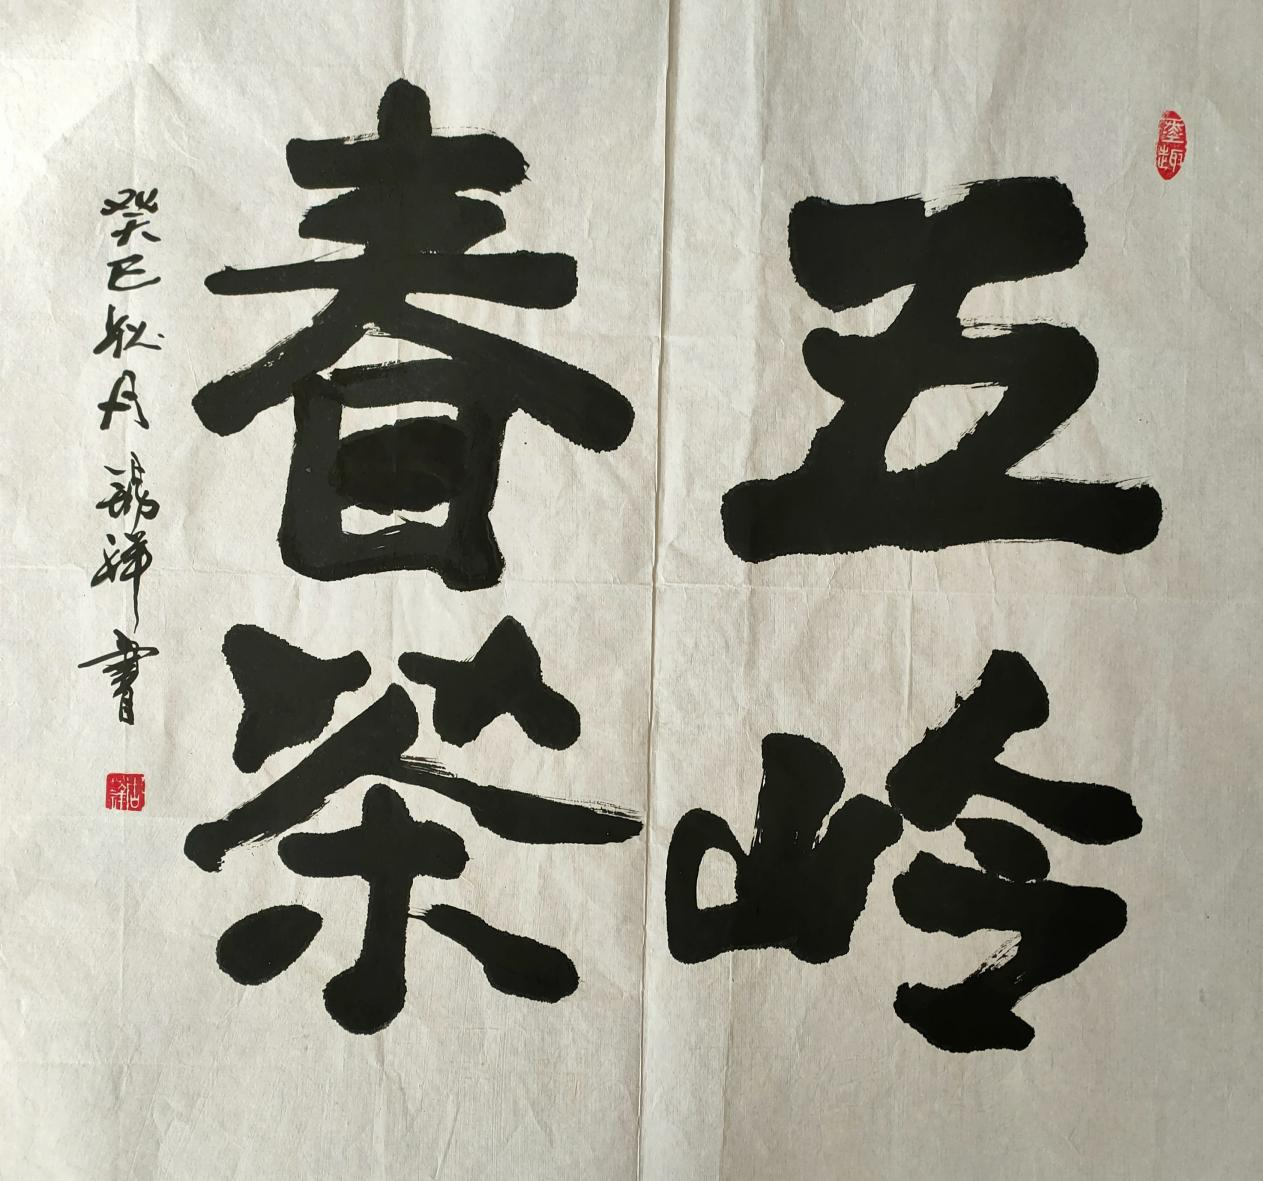 五岭
春茶
癸巳秋月 祥書